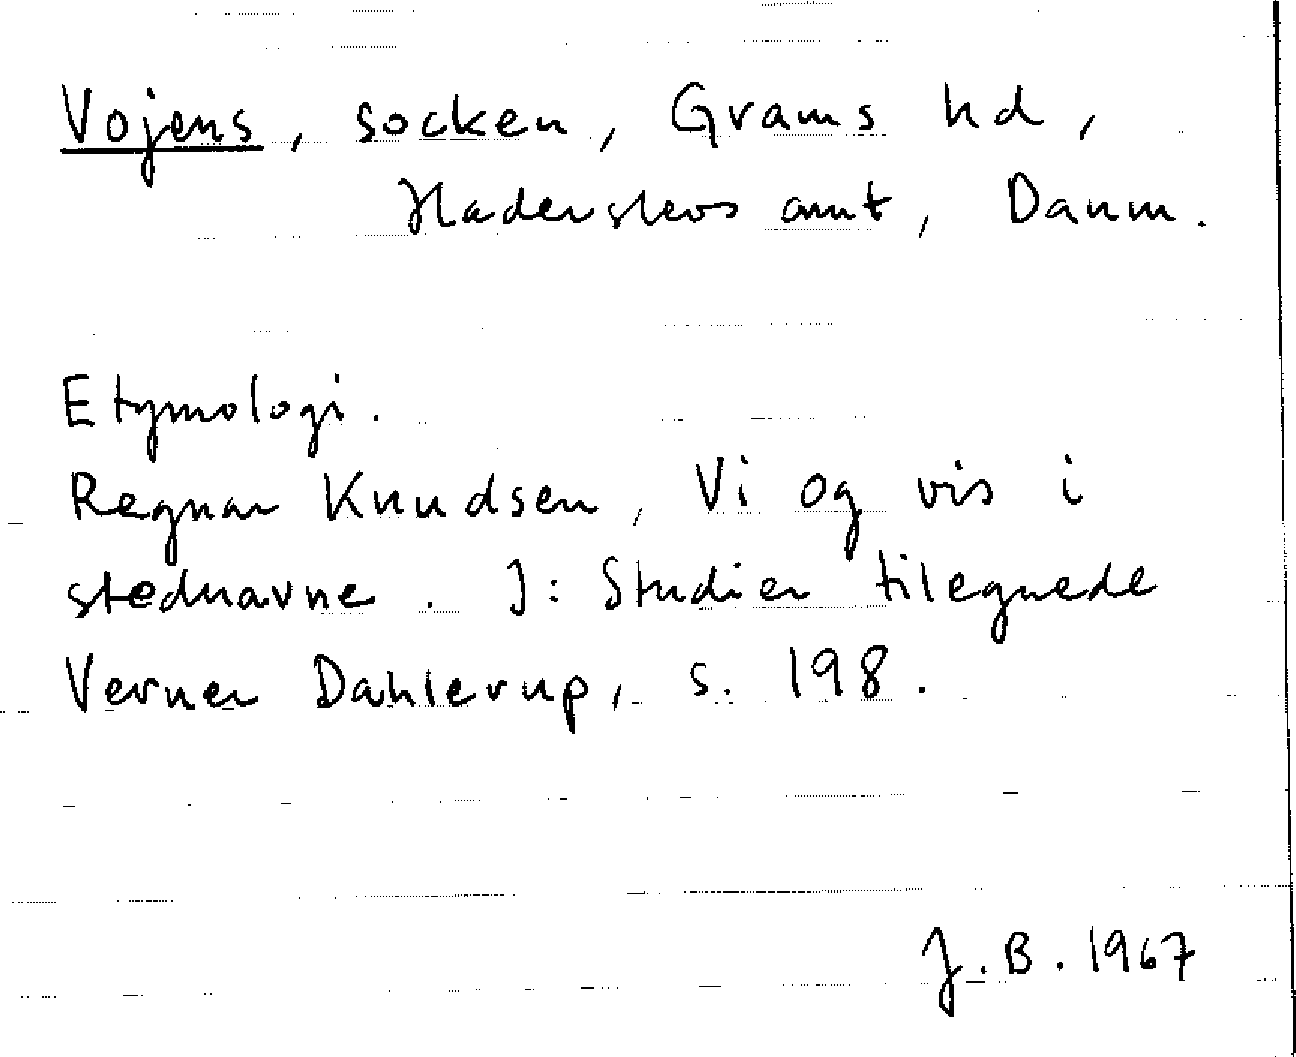 Vojens, socken, Grams hd,
Haderslevs amt, Danm.
Etymologi.
Regnar Knudsen, Vi og vis i
stednavne. I: Studier tilegnede
Verner Dahlerup, s. 198.
J.B. 1967